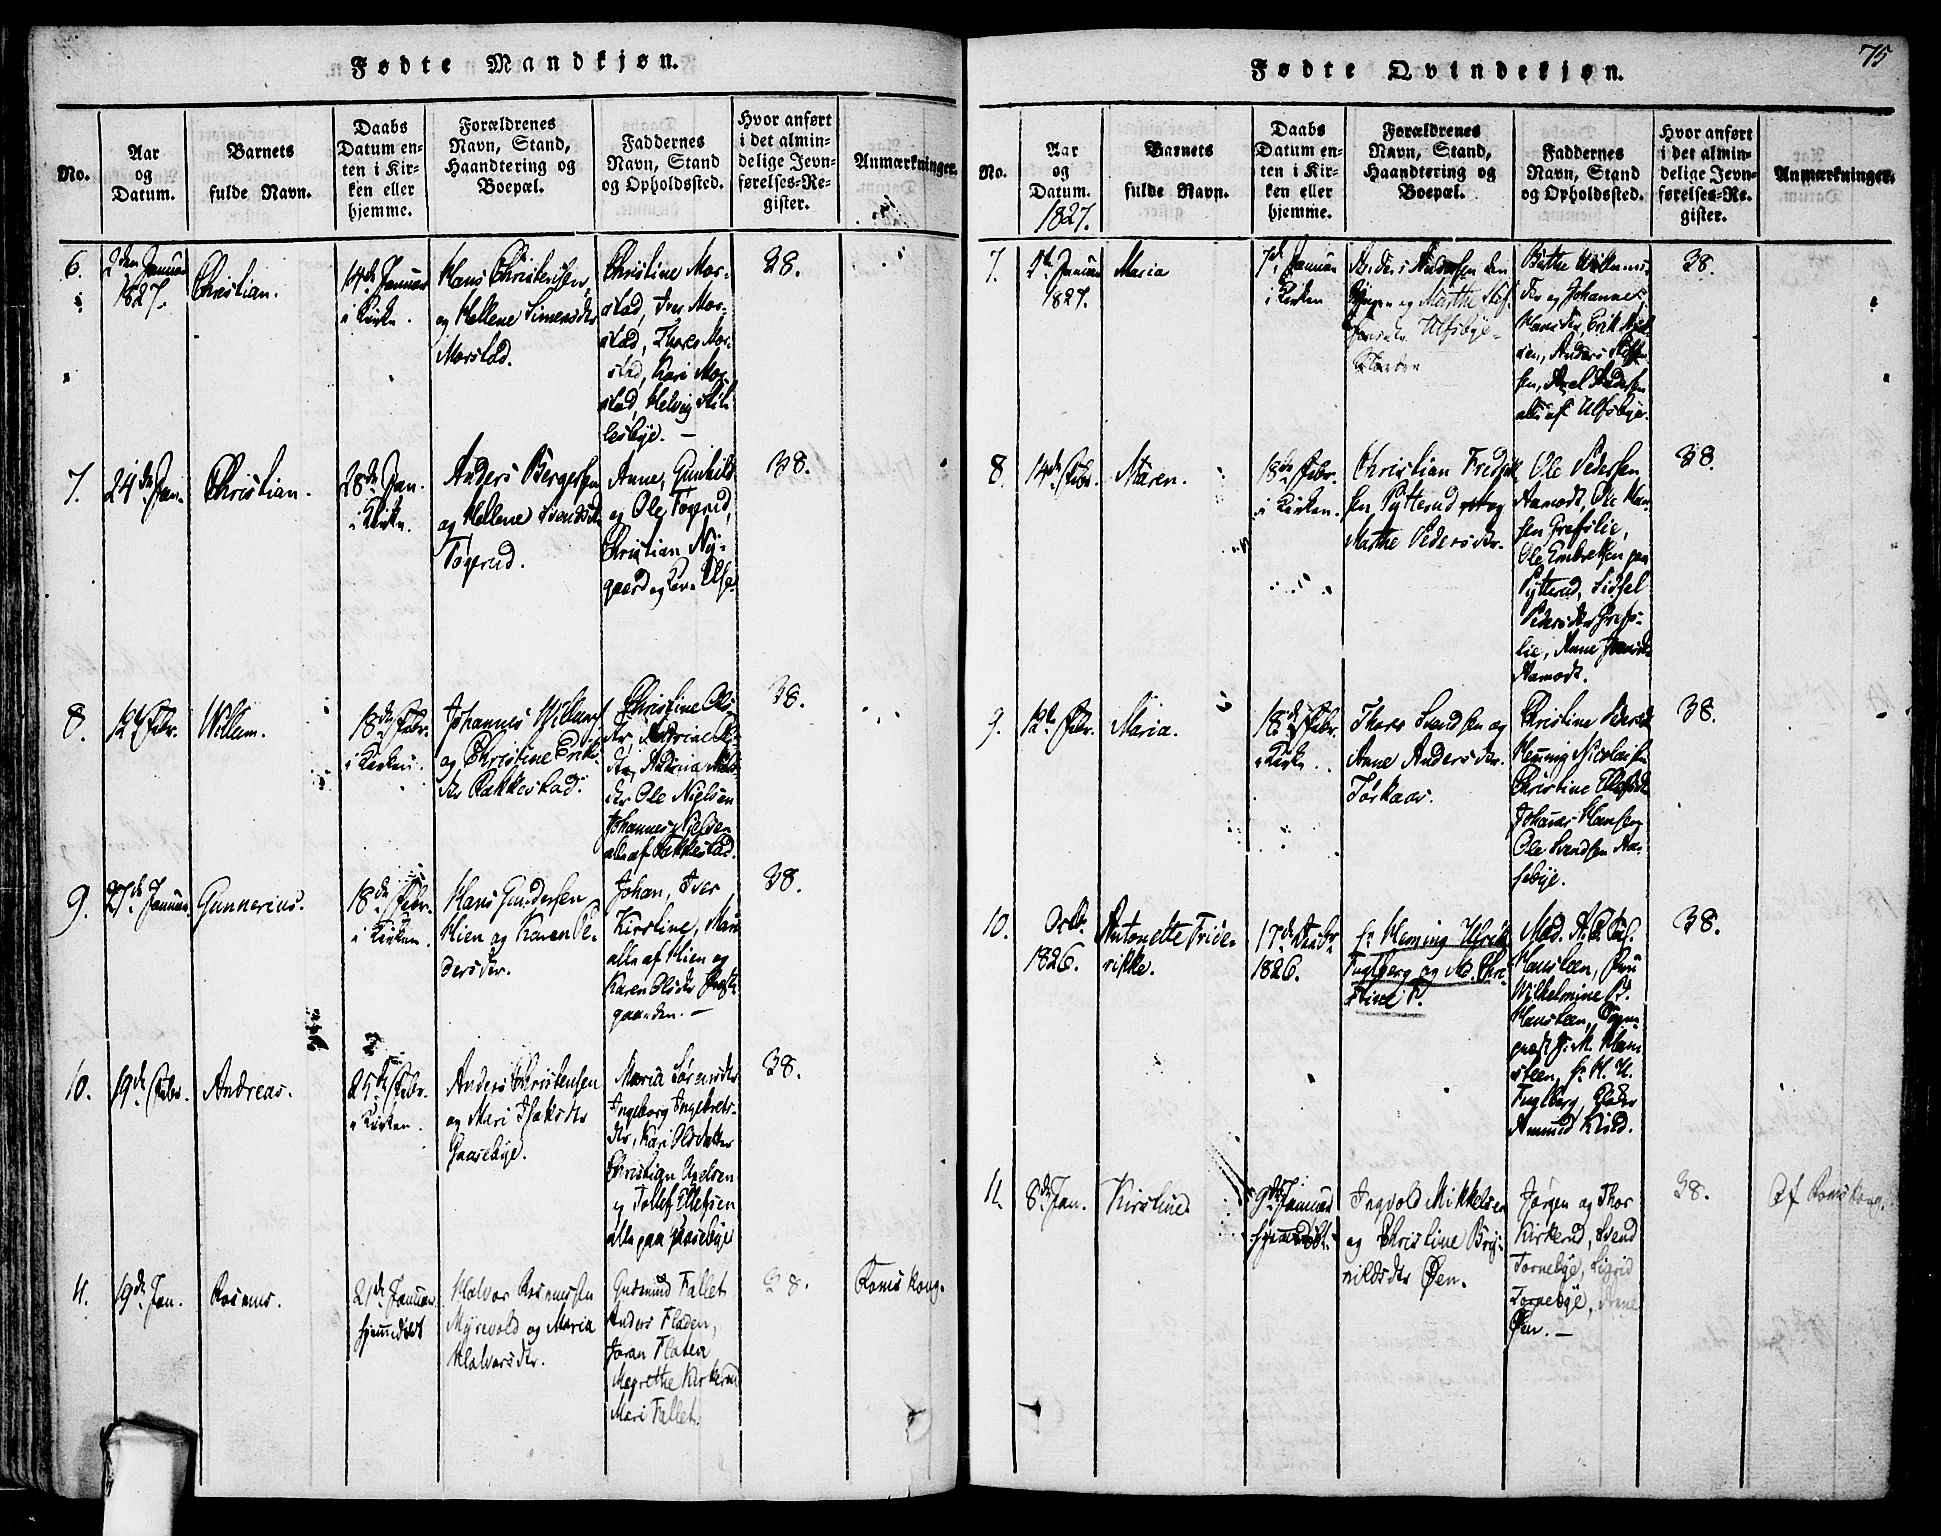 75
Fødte Mandkjøn.
No.
Aar
og
Datum.
Barnets
fulde Navn.
Daabs
Datum en-
ten i Kir-
ken eller
hjemme.
Forældrenes
Navn, Stand,
Haandtering og
Boepæl.
Faddernes
Navn, Stand
og Opholdssted.
Hvor anført
i det almin-
delige Jevn-
førelses-Re-
gister.
Anmærkninger.
6.
2den Januar
1827.
Christian.
14de Januar
i Kirken.
Hans Christensen
og Hellene Simensdr
Morstad.
Christine Mor-
stad, Iver Mor-
stad, Thores Mor-
stad, Kari Mor-
stad, Helvig
lesbye. —
38.
7.
24de Jan.
Christian.
28de Jan.
i Kirken.
Anders Bergersen
og Hellene Svendsdr
Togerud.
Anne, Gunhild
og Ole Togerud,
Christian Ny-
gaard og
38.
8.
12te Febr.
Willum.
18de Febr.
i Kirken.
Johannes Willums
og Christine Erik-
dr Rakkestad.
Christine Ols-
dr Andrine
dr, Andrina Niels
dr Ole Nielsen
Johannes
alle af Rakkestad.
38.
9.
27de Januar
Gunnerius.
18de Febr.
i Kirken.
Hans Gundersen
Hien og Karen Pe-
dersdr.
Johan, Iver
Kirstine, Mari
alle af Hien og
Karen Olsdr Præste
gaarden. —
38.
10.
19de Febr.
Andreas.
25de Febr.
i Kirken.
Anders Christensen
og Mari Isaksdr
Haasebye.
Maria Sørensdr
Ingeborg Ingebrets-
dr, Kari Olsdatter
Christian Axelsen
og Tollef Ellefsen
alle paa Haasebye
38.
11.
19de Jan.
Rasmus.
21de Januar
hjemmedøbt
Halvor Rasmussen
Myrevold og Maria
Halvorsdr.
Gudmund Fallet
Anders Fladen,
Joran Floten
Megrethe Kirkerud
Mari Fallet.
38.
Romskoug.
Fødte Qvindekjøn.
No.
Aar
og
Datum.
1827.
Barnets
fulde Navn.
Daabs
Datum en-
ten i Kir-
ken eller
hjemme.
Forældrenes
Navn, Stand,
Haandtering og
Boepæl.
Faddernes
Navn, Stand
og Opholdssted.
Hvor anført
i det almin-
delige Jevn-
førelses-Re-
gister.
Anmærkninger.
7.
Januar
1827.
Maria
7de Januar
i Kirken
Anders Andersen den
Yngre og Marthe
Ulfsbye
Birthe Willums-
dr og Johanne
Hansdr, Erik
sen, Anders
sen, Axel Andersen
alle af Ulfsbye.
38.
8.
14de Febr.
Maren.
18de Febr.
i Kirken.
Christian Fredrik
sen Pytterud og
Marthe Pedersdr.
Ole Pedersen
Aamodt, Ole Han-
sen Grefslie,
Ole Embretsen paa
Pytterud, Sidsel
Pedersdr Grefs-
lie, Anne
Aamodt.
38.
9.
12te Febr.
Maria.
18de Febr.
i Kirken.
Thores Svendsen og
Anne Andersdr.
Torkaas.
Christine Pedersdr
Henning Nicolaisen
Christine
Johanes Hansen
Ole Svendsen Haa-
sebye.
38.
10.
Octbr.
1826.
Antonette Fride-
rikke.
17de
1826.
Hr Henning Ulrik
Fuglberg og Md. Chri-
stine F.
Mad. A.
Hansteen,
Wilhelmine
Hansteen, Sogne
præst Hr M. Han
steen, Hr H. U.
Fuglberg, Peder
Amund Kiold.
38.
11.
8de Jan.
Kirstine
9de Januar
hjemmedøbt.
Ingvold Mikkelsen
og Christine Bry-
nildsdr Øen.
Jørgen og Thor
Kirkerud, Svend
Tornebye, Sigrid
Tornebye, Anne
Øen. —
38.
Af Romskoug.